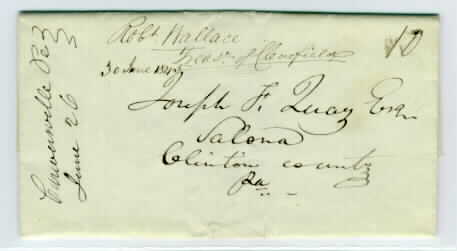 Robt Wallace
Treasr of Clearfield
30 June 1849
10
Joseph F. Quay Esq
Salona
Clinton county
Pa
Curwensville Pa
June 26